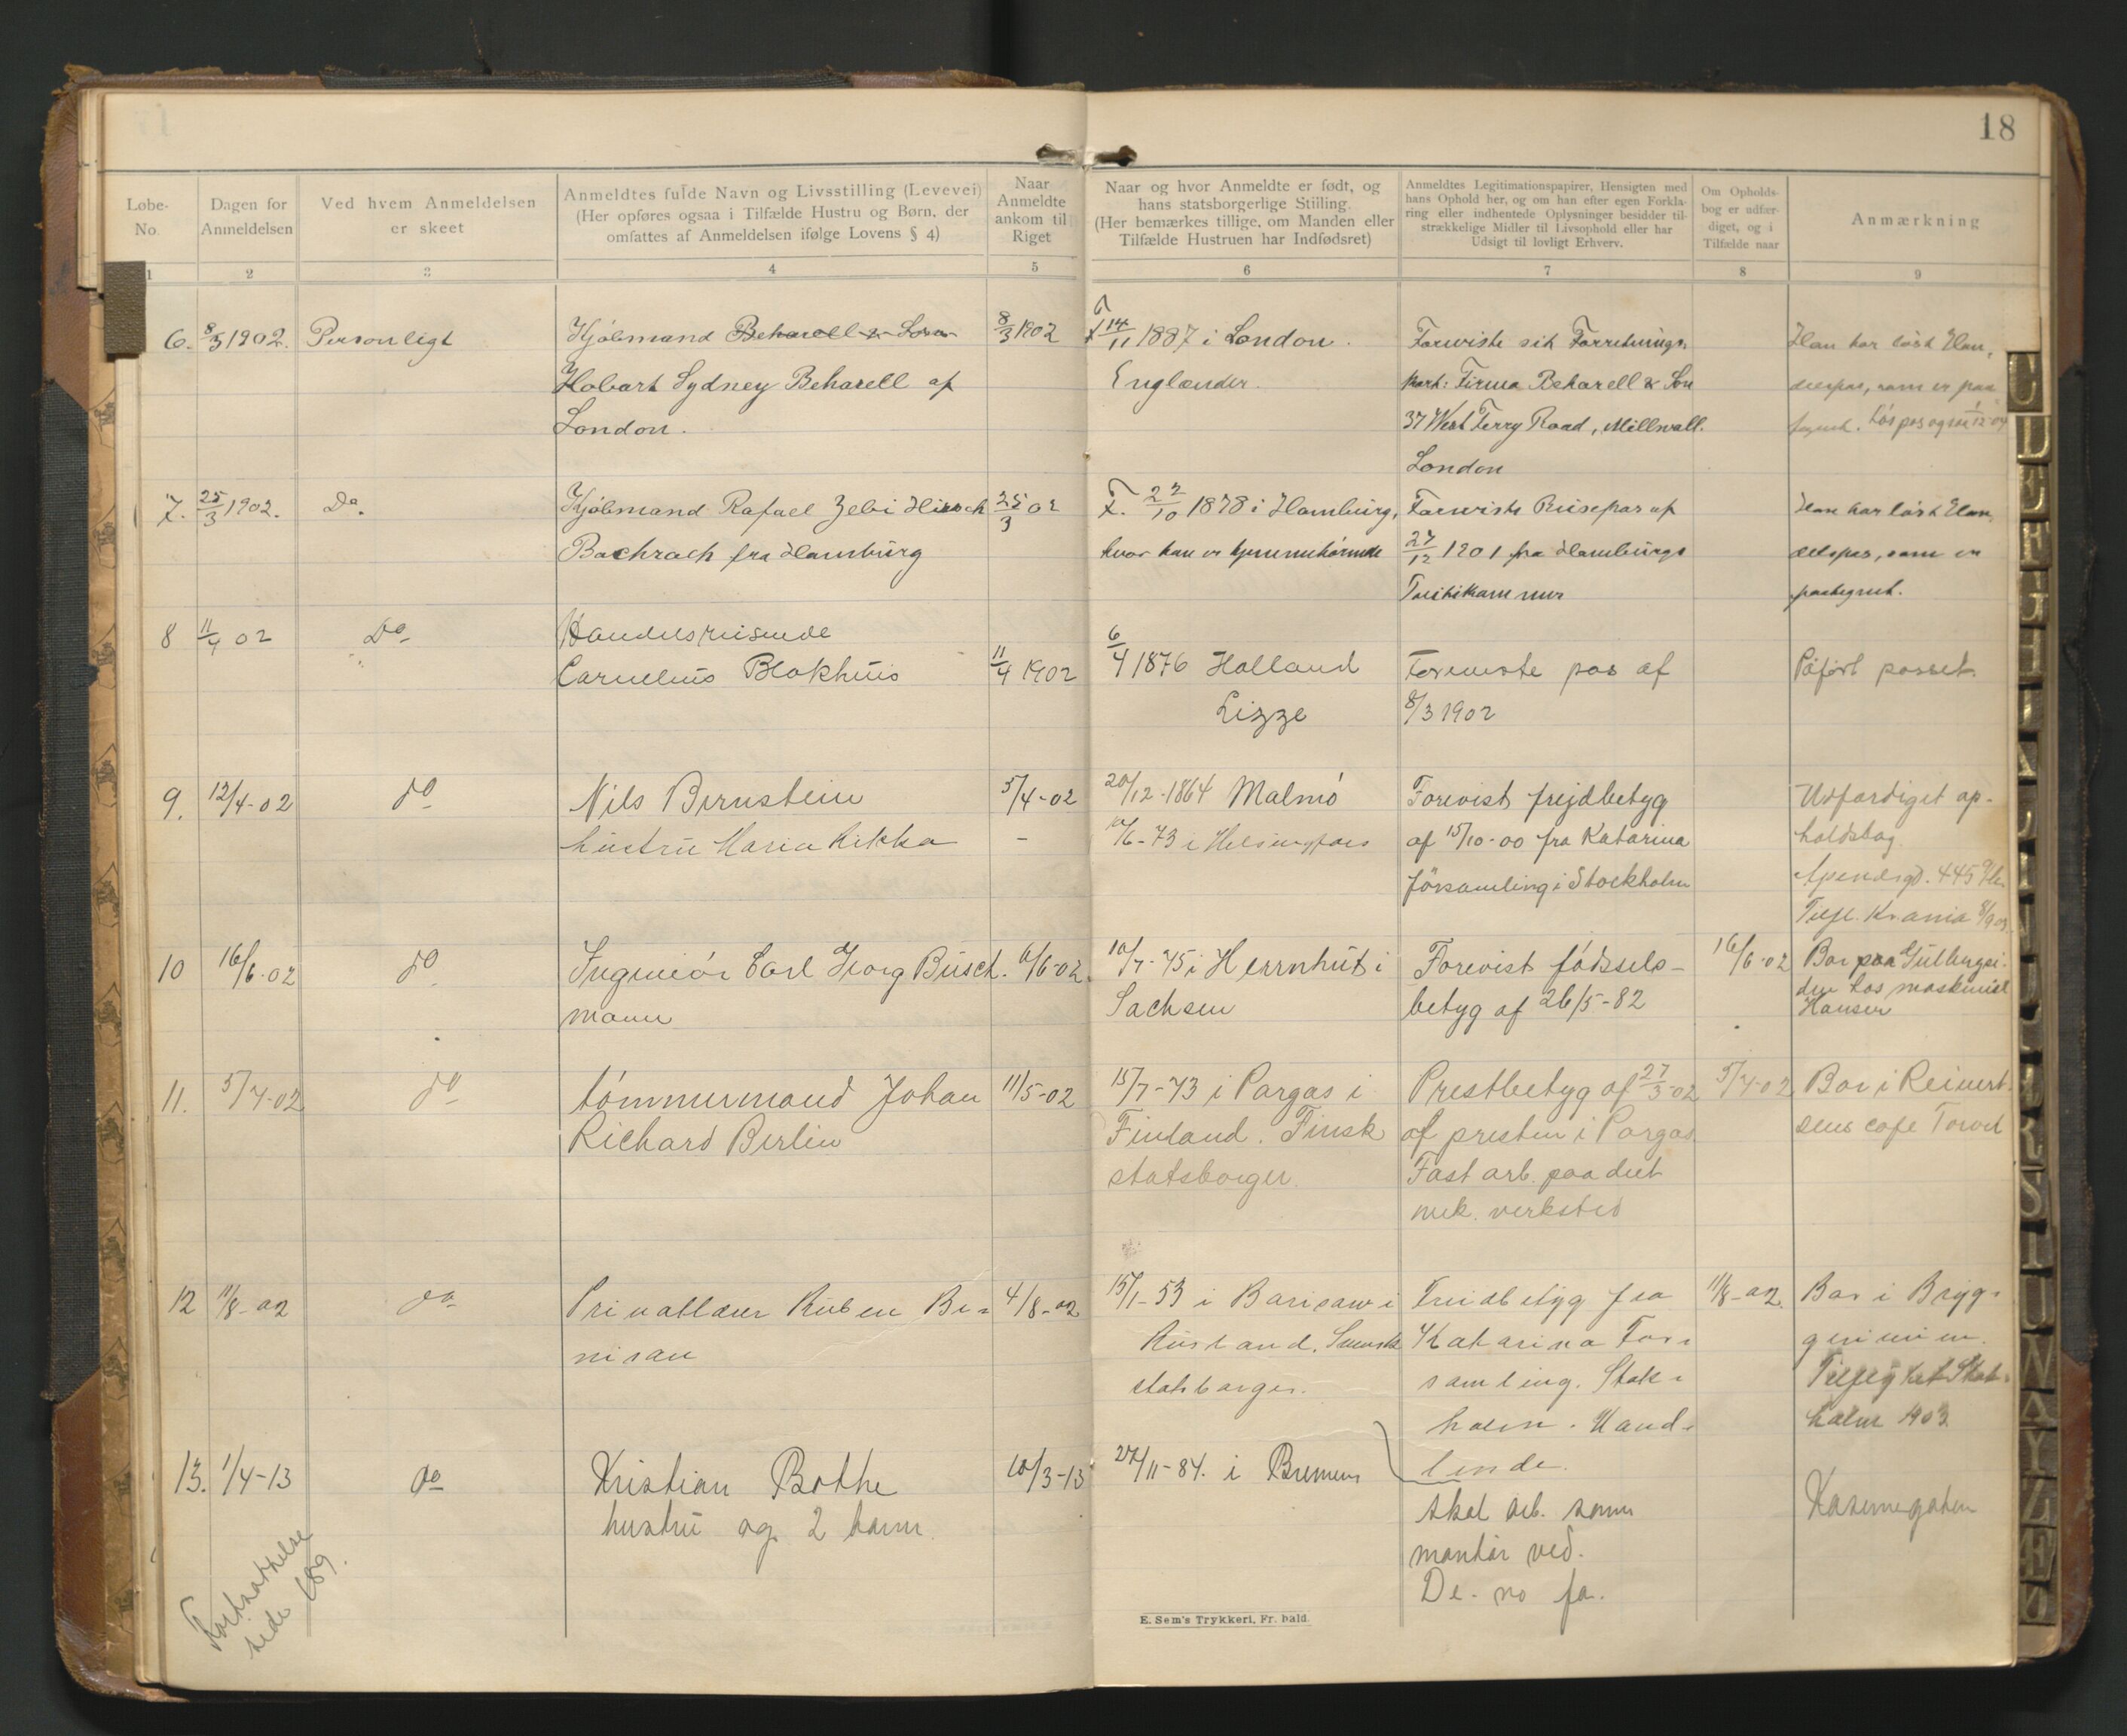 18
Løbe-
No.
Dagen for
Anmeldelsen
Ved hvem Anmeldelsen
er skeet
Anmeldtes fulde Navn og Livsstilling (Levevei)
(Her opføres ogsaa i Tilfælde Hustru og Børn, der
omfattes af Anmeldelsen ifølge Lovens § 4)
Naar
Anmeldte
ankom til
Riget
Naar og hvor Anmeldte er født, og
hans statsborgerlige Stilling.
(Her bemærkes tillige, om Manden eller
Tilfælde Hustruen har Indfødsret)
Anmeldtes Legitimationspapirer, Hensigten med
hans Ophold her, og om han efter egen Forkla-
ring eller indhentede Oplysninger besidder til-
strækkelige Midler til Livsophold eller har
Udsigt til lovligt Erhverv.
Om Opholds-
bog er udfær-
diget, og i
Tilfælde naar
Anmærkning
1 2 3 4 5 6 7 8 9
6. 8/3 1902. Personligt
Kjøbmand Beharell & Son
Hobart Sydney Beharell af
London.
8/3 1902
F. 14/11 1887 i London.
Englænder.
Foreviste sit Forretnings-
kort: Firma Beharell & Son
37 West Ferry Road, Millwall.
London
Han har løst Han-
delspas, som er paa-
tegnet. Løs pas ogsaa 1/12-04
7. 25/3 1902. Do.
Kjøbmand Rafael Zebi Hirsch
Bachrach fra Hamburg
25/3 02
F. 22/10 1878 i Hamburg,
hvor han er hjemmehørende
Foreviste Reisepas af
27/12 1901 fra Hamburgs
Politikammer
Han har løst Han-
delspas, som er
paategnet.
8 11/4 02 Do
Handelsreisende
Cornelius Blokhuis
11/4 1902
6/4 1876 Holland
Lizze
Foreviste pas af
8/3 1902
Påført passet
9. 12/4-02 do
Nils Bernstein
hustru Maria Rikka
5/4-02
-
20/12-1864 Malmö
/6-73 i Helsingfors
Forevist frejdbetyg
af 15/10-00 fra Katarina
församling i Stockholm
Udfærdiget op-
holdsbog.
445
Tilfl. Kr.ania 8/9 03
10 16/6-02 do
Ingeniør Carl Georg Busch-
mann
6/6-02.
10/7-75 i Herrnhut i
Sachsen
Forevist fødsels-
betyg af 26/5-82
16/6-02
Bor paa Gulbergsi-
den hos maskinist
Hansen
11. 5/7-02 do
tømmermand Johan
Richard Berlin
11/5-02
15/7-73 i Pargas i
Finland. Finsk
statsborger.
Prestbetyg af 27/3-02
af presten i Pargas.
Fast arb. paa det
mek. verksted
5/7-02
Bor i Reinert-
sens cafe Torvet
12 11/8-02 do
Privatlærer Ruben Be-
nisau
4/8-02
15/1-53 i Barisaw i
Rusland. Svensk
statsborger.
Freidbetyg fra
Katarina For-
samling. Stok-
holm. Hand-
lende.
11/8-02.
Bor i Bryg-
gerimien.
Tilflyttet Stok-
holm 1903
13. 1/4-13 do
Kristian Bothe
hustru og 2 barn.
10/3-13
27/11-84. i Bremen
skal arb. som
montør ved.
De-no fa.
Kasernegaten
Fortsættelse
side 189.
E. Sem's Trykkeri, Fr. hald.